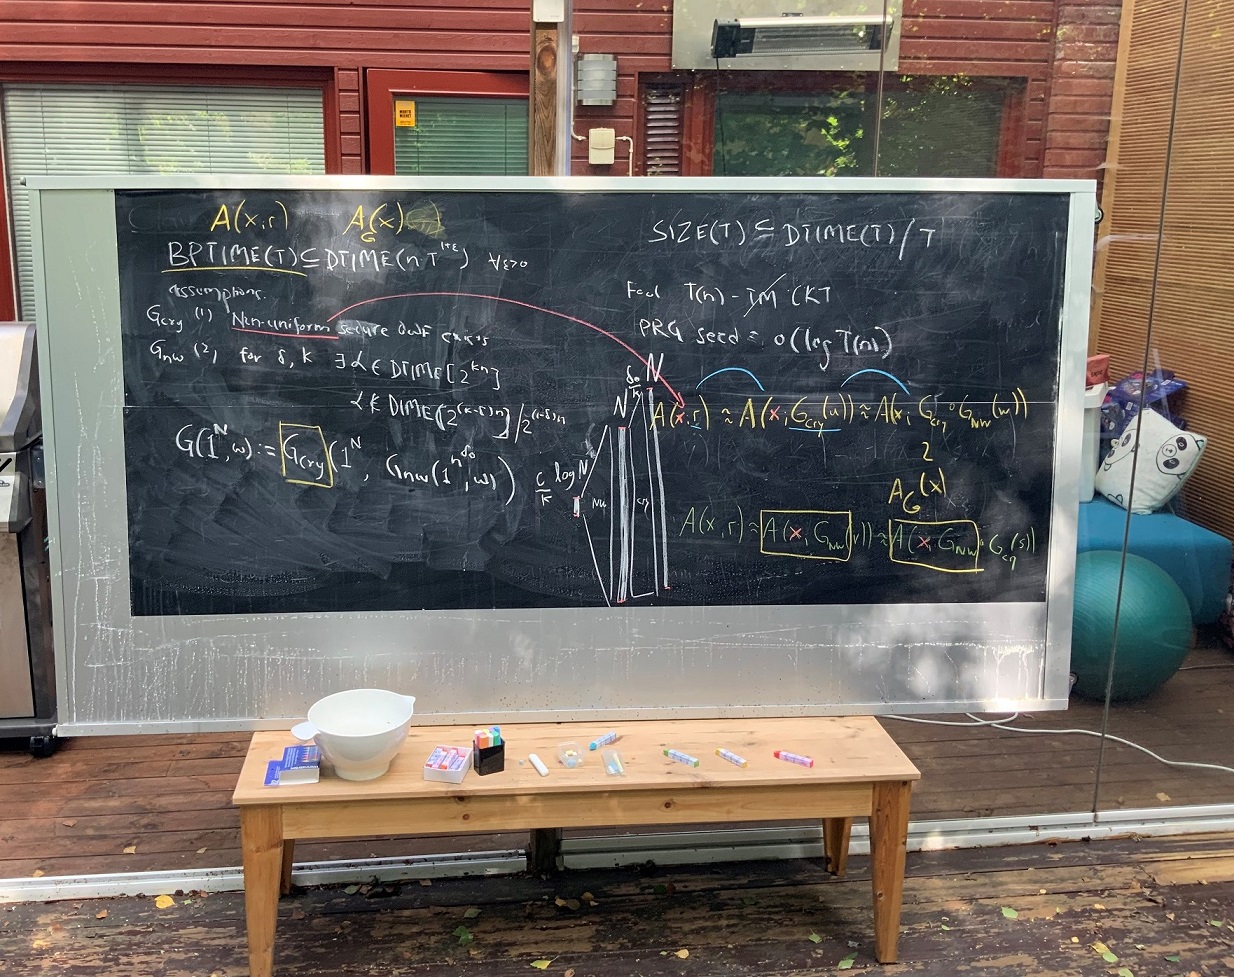 A(x,r)   A_G(x)
BPTIME(T) ⊆ DTIME(n·T^{1+ε}) ∀ε>0
Assumptions.
G_cry (1) Non-uniform secure OWF exists
G_nw (2) for δ, k ∃ L ∈ DTIME[2^{kn}]
L ∉ DTIME[2^{(k-δ)n}]/2^{(1-δ)n}
G(1^N, w) := G_cry(1^N, G_nw(1^{n^δ0}, w))
SIZE(T) ⊆ DTIME(T)/T
Fool T(n) - TM CKT
PRG seed = o(log T(n))
N
δ0/k
N
A(x,r) ≈ A(x, G_cry(u)) ≈ A(x, G_cry ∘ G_nw(w))
2
A_G(x)
c/k log N
NW
cry
A(x,r) ≈ A(x, G_NW(r)) ≈ A(x, G_NW ∘ G_cry(s))